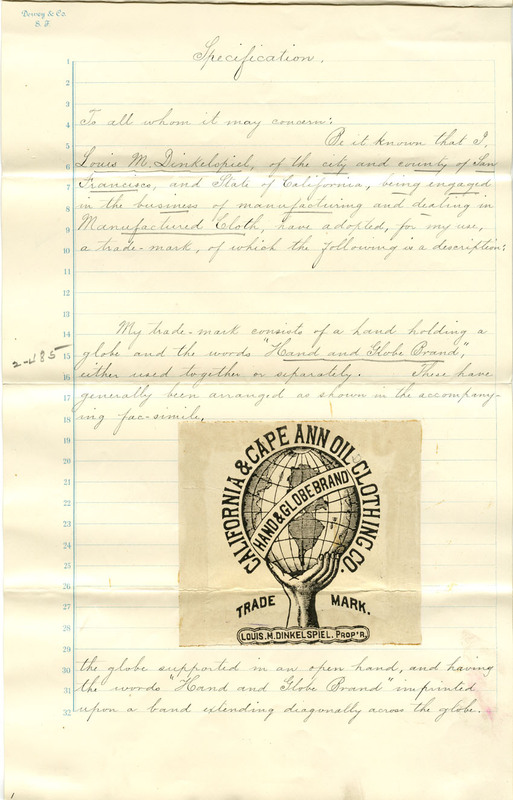 Dewey & Co.
S. F.
Specification.
1
2
3
4 To all whom it may concern:
5 Be it known that I,
6 Louis M. Dinkelspiel, of the city and county of San
7 Francisco, and State of California, being engaged
8 in the business of manufacturing and dealing in
9 Manufactured Cloth, have adopted, for my use,
10 a trade-mark, of which the following is a description:
11
12
13
14 My trade-mark consists of a hand holding a
2-485
15 globe and the words "Hand and Globe Brand",
16 either used together or separately. These have
17 generally been arranged as shown in the accompany-
18 ing fac-simile,
19
20
21
22
23
24
25
26
27
28
29
CALIFORNIA & CAPE ANN OIL CLOTHING CO.
HAND & GLOBE BRAND
TRADE MARK.
LOUIS. M. DINKELSPIEL. PROP'R.
30 the globe supported in an open hand, and having
31 the words "Hand and Globe Brand" imprinted
32 upon a band extending diagonally across the globe.